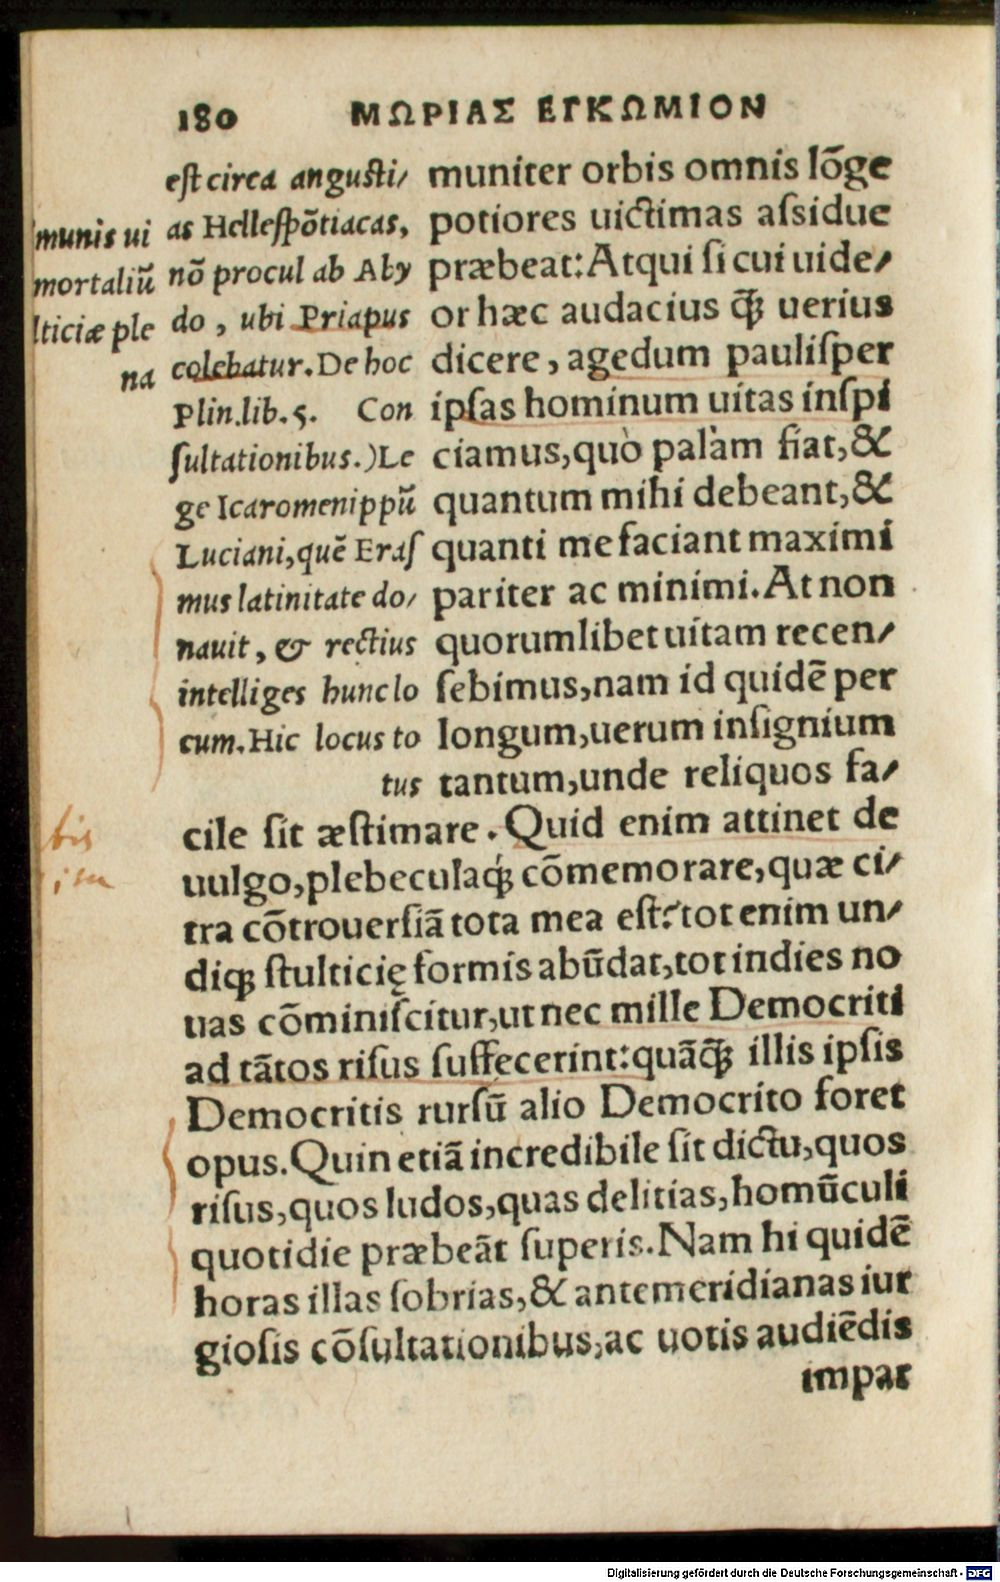 180 ΜΩΡΙΑΣ ΕΓΚΩΜΙΟΝ
munis ui
mortaliũ
lticiæ ple
na
est circa angusti/
as Hellespõtiacas,
nõ procul ab Aby
do, ubi Priapus
colebatur. De hoc
Plin.lib.5. Con
sultationibus.)Le
ge Icaromenippũ
Luciani,quẽ Eras
mus latinitate do/
nauit, & rectius
intelliges hunc lo
cum.Hic locus to
tus
muniter orbis omnis lõge
potiores uictimas assidue
præbeat:Atqui si cui uide/
or hæc audacius q̃ꝫ uerius
dicere, agedum paulisper
ipsas hominum uitas inspi
ciamus,quò palàm fiat,&
quantum mihi debeant,&
quanti me faciant maximi
pariter ac minimi.At non
quorumlibet uitam recen/
sebimus,nam id quidẽ per
longum,uerum insignium
tantum,unde reliquos fa/
cile sit æstimare.Quid enim attinet de
uulgo,plebeculaq́ꝫ cõmemorare,quæ ci/
tra cõtrouersiã tota mea est?tot enim un/
diqꝫ stulticię formis abũdat,tot indies no
uas cõminiscitur,ut nec mille Democriti
ad tãtos risus suffecerint:quãq̃ꝫ illis ipsis
Democritis rursũ alio Democrito foret
opus.Quin etiã incredibile sit dictu,quos
risus,quos ludos,quas delitias,homũculi
quotidie præbeãt superis.Nam hi quidẽ
horas illas sobrias,& antemeridianas iur
giosis cõsultationibus,ac uotis audiẽdis
impar
Digitalisierung gefördert durch die Deutsche Forschungsgemeinschaft - DFG